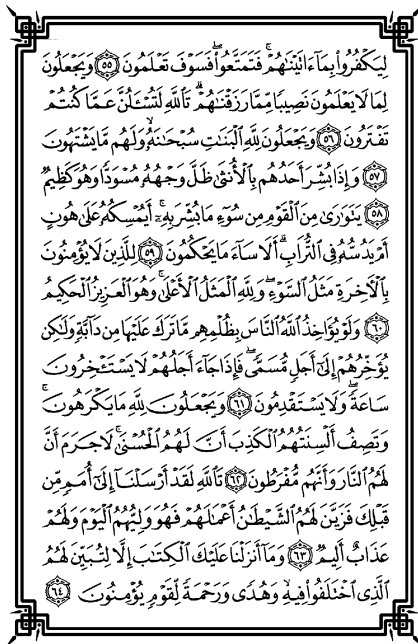 لِيَكْفُرُوا۟ بِمَآ ءَاتَيْنَٰهُمْ ۚ فَتَمَتَّعُوا۟ ۖ فَسَوْفَ تَعْلَمُونَ ٥٥ وَيَجْعَلُونَ
لِمَا لَا يَعْلَمُونَ نَصِيبًا مِّمَّا رَزَقْنَٰهُمْ ۗ تَٱللَّهِ لَتُسْـَٔلُنَّ عَمَّا كُنتُمْ
تَفْتَرُونَ ٥٦ وَيَجْعَلُونَ لِلَّهِ ٱلْبَنَٰتِ سُبْحَٰنَهُۥ ۙ وَلَهُم مَّا يَشْتَهُونَ
٥٧ وَإِذَا بُشِّرَ أَحَدُهُم بِٱلْأُنثَىٰ ظَلَّ وَجْهُهُۥ مُسْوَدًّا وَهُوَ كَظِيمٌ
٥٨ يَتَوَٰرَىٰ مِنَ ٱلْقَوْمِ مِن سُوٓءِ مَا بُشِّرَ بِهِۦٓ ۚ أَيُمْسِكُهُۥ عَلَىٰ هُونٍ
أَمْ يَدُسُّهُۥ فِى ٱلتُّرَابِ ۗ أَلَا سَآءَ مَا يَحْكُمُونَ ٥٩ لِلَّذِينَ لَا يُؤْمِنُونَ
بِٱلْءَاخِرَةِ مَثَلُ ٱلسَّوْءِ ۖ وَلِلَّهِ ٱلْمَثَلُ ٱلْأَعْلَىٰ ۚ وَهُوَ ٱلْعَزِيزُ ٱلْحَكِيمُ
٦٠ وَلَوْ يُؤَاخِذُ ٱللَّهُ ٱلنَّاسَ بِظُلْمِهِم مَّا تَرَكَ عَلَيْهَا مِن دَآبَّةٍ وَلَٰكِن
يُؤَخِّرُهُمْ إِلَىٰٓ أَجَلٍ مُّسَمًّى ۖ فَإِذَا جَآءَ أَجَلُهُمْ لَا يَسْتَـْٔخِرُونَ
سَاعَةً ۖ وَلَا يَسْتَقْدِمُونَ ٦١ وَيَجْعَلُونَ لِلَّهِ مَا يَكْرَهُونَ ۚ
وَتَصِفُ أَلْسِنَتُهُمُ ٱلْكَذِبَ أَنَّ لَهُمُ ٱلْحُسْنَىٰ ۖ لَا جَرَمَ أَنَّ
لَهُمُ ٱلنَّارَ وَأَنَّهُم مُّفْرَطُونَ ٦٢ تَٱللَّهِ لَقَدْ أَرْسَلْنَآ إِلَىٰٓ أُمَمٍ مِّن
قَبْلِكَ فَزَيَّنَ لَهُمُ ٱلشَّيْطَٰنُ أَعْمَٰلَهُمْ فَهُوَ وَلِيُّهُمُ ٱلْيَوْمَ وَلَهُمْ
عَذَابٌ أَلِيمٌ ٦٣ وَمَآ أَنزَلْنَا عَلَيْكَ ٱلْكِتَٰبَ إِلَّا لِتُبَيِّنَ لَهُمُ
ٱلَّذِى ٱخْتَلَفُوا۟ فِيهِ ۙ وَهُدًى وَرَحْمَةً لِّقَوْمٍ يُؤْمِنُونَ ٦٤